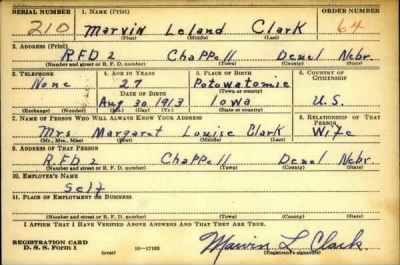 SERIAL NUMBER 1. NAME (Print) ORDER NUMBER
210 Marvin Leland Clark 64
(First) (Middle) (Last)
2. ADDRESS (Print)
RFD 2 Chappell Deuel Nebr.
(Number and street or R. F. D. number) (Town) (County) (State)
3. TELEPHONE 4. AGE IN YEARS 5. PLACE OF BIRTH 6. COUNTRY OF CITIZENSHIP
None 27 Potowatomie
DATE OF BIRTH (Town or county)
Aug 30 1913 Iowa U.S.
(Exchange) (No.) (Mo.) (Day) (Yr.) (State or country)
7. NAME OF PERSON WHO WILL ALWAYS KNOW YOUR ADDRESS 8. RELATIONSHIP OF THAT PERSON
Mrs Margaret Louise Clark Wife
(Mr., Mrs., Miss) (First) (Middle) (Last)
9. ADDRESS OF THAT PERSON
RFD 2 Chappell Deuel Nebr.
(Number and street or R. F. D. number) (Town) (County) (State)
10. EMPLOYER'S NAME
Self
11. PLACE OF EMPLOYMENT OR BUSINESS
(Number and street or R. F. D. number) (Town) (County) (State)
I AFFIRM THAT I HAVE VERIFIED ABOVE ANSWERS AND THAT THEY ARE TRUE.
REGISTRATION CARD
D. S. S. Form 1 16-17105 Marvin L Clark.
(Registrant's signature)